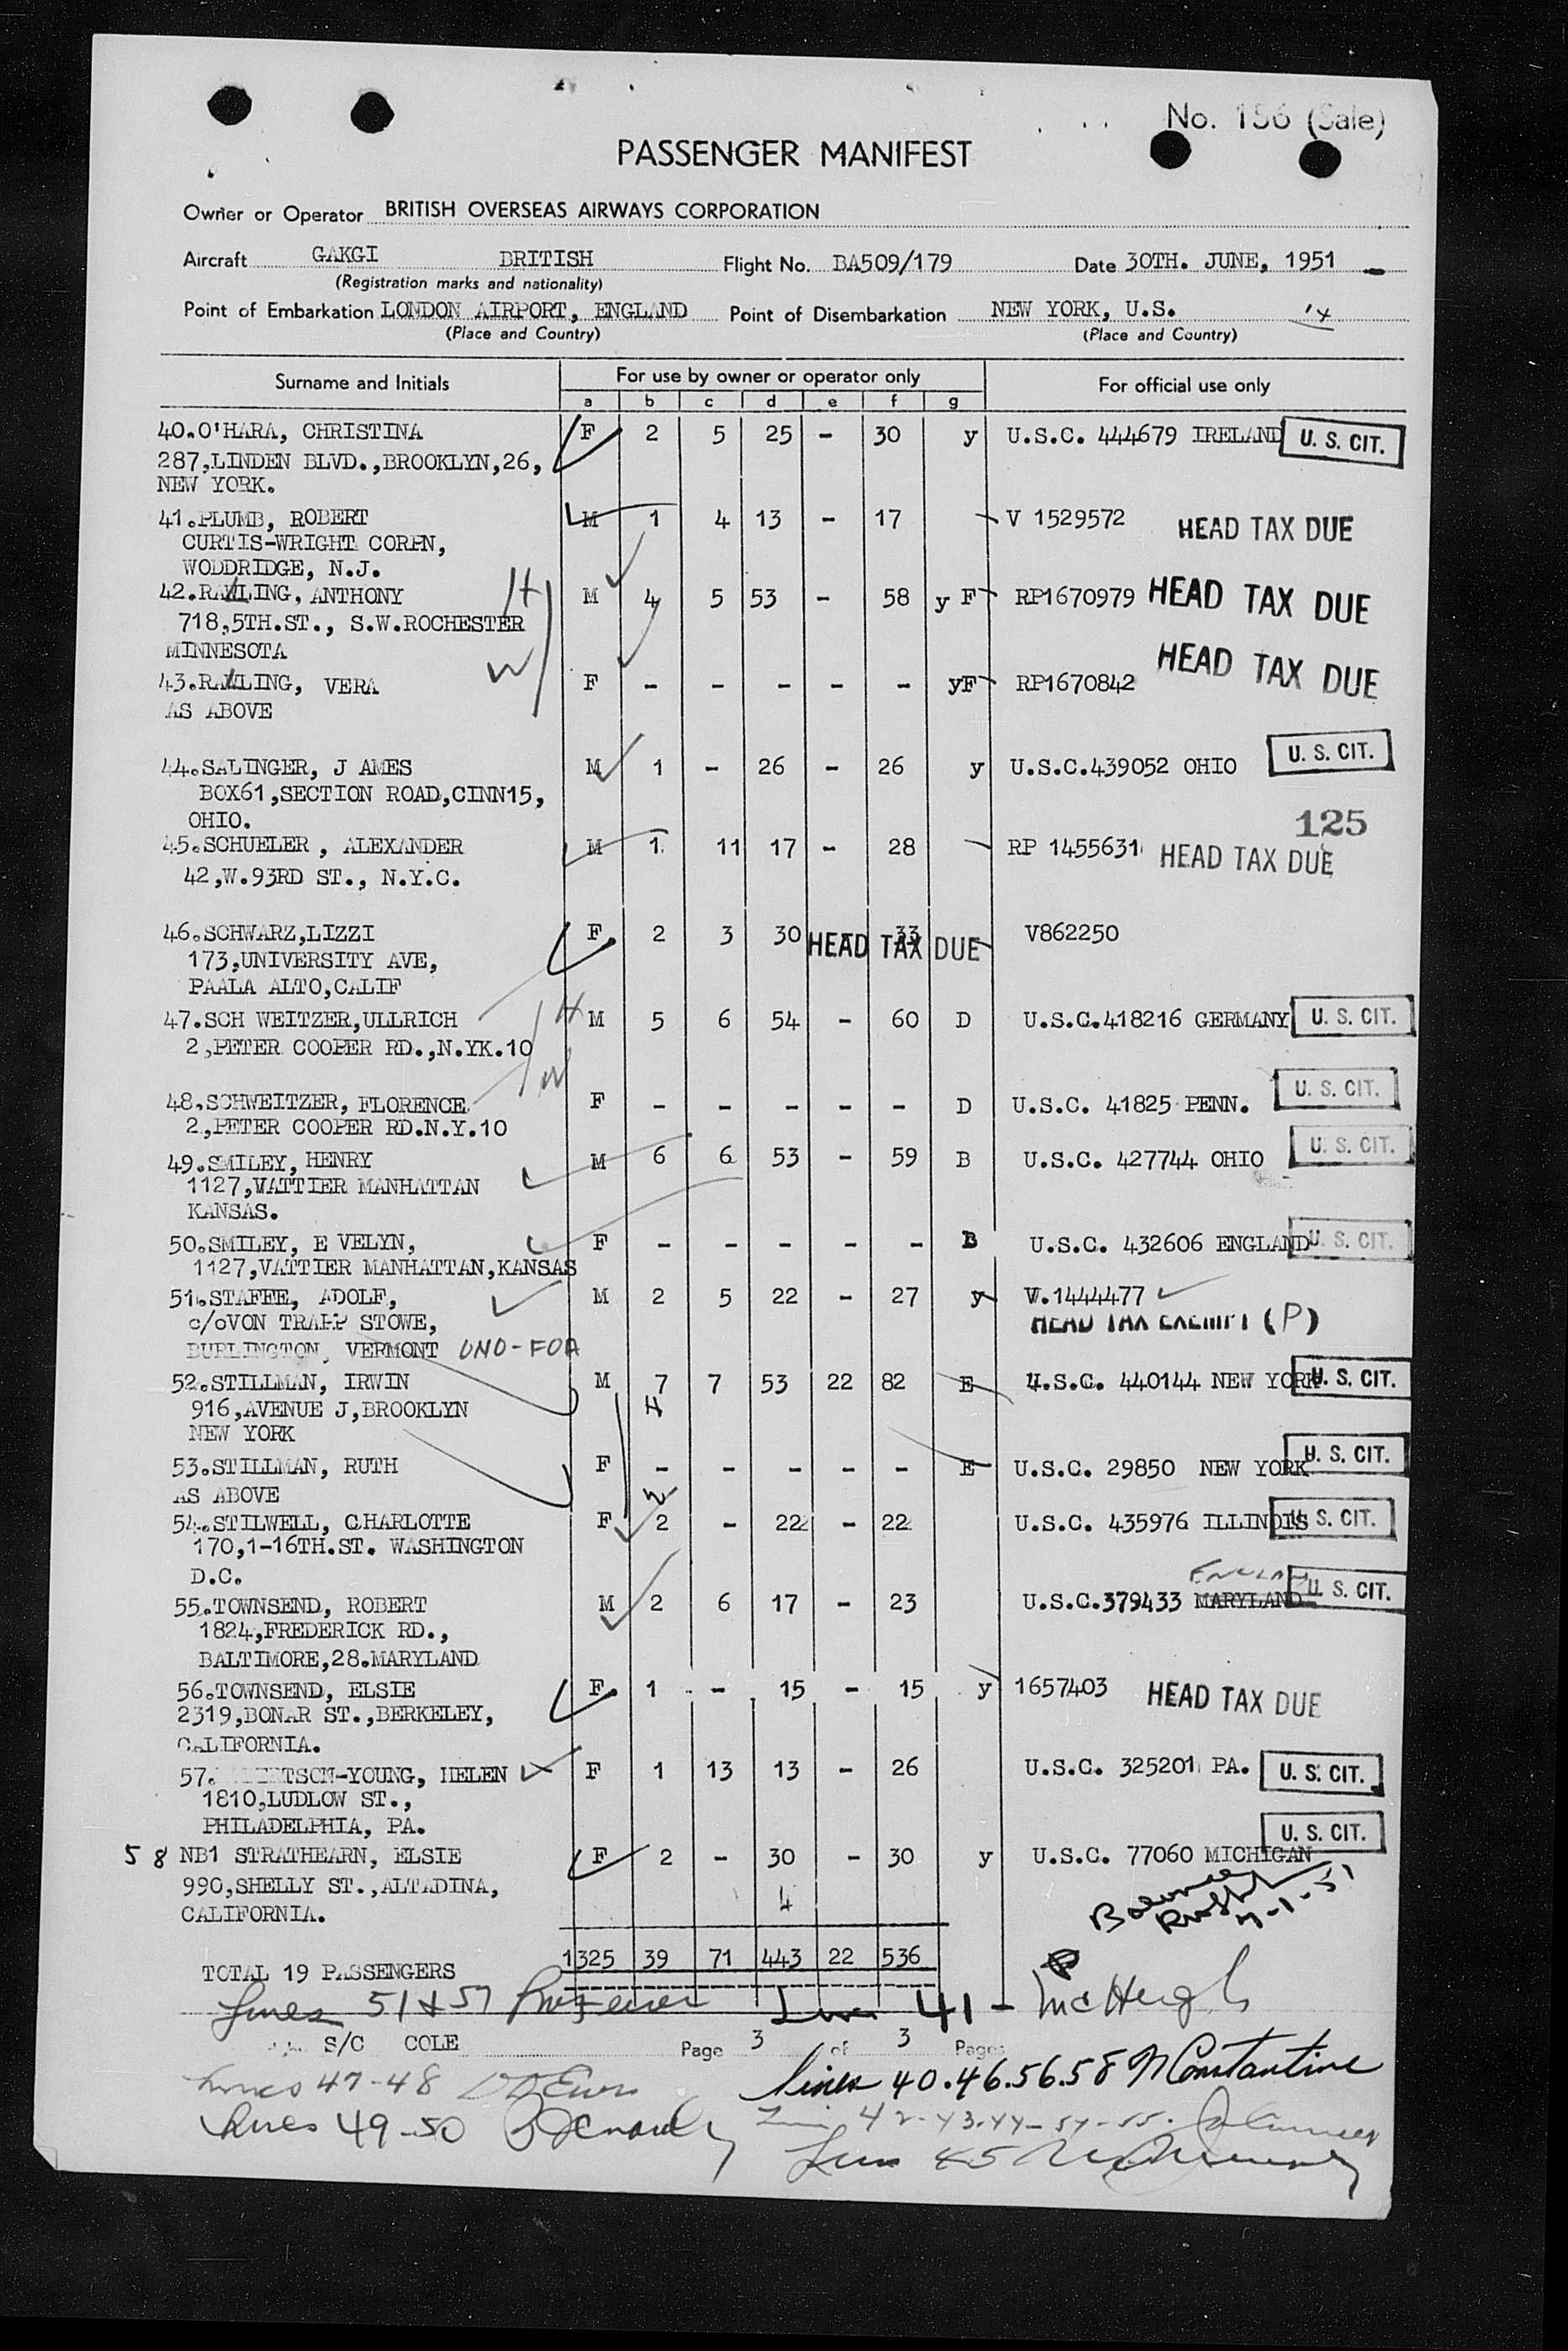 No. 156 (Sale)
PASSENGER MANIFEST
Owner or Operator BRITISH OVERSEAS AIRWAYS CORPORATION
Aircraft GAKGI BRITISH Flight No. BA509/179 Date 30TH. JUNE, 1951
(Registration marks and nationality)
Point of Embarkation LONDON AIRPORT, ENGLAND Point of Disembarkation NEW YORK, U.S.
(Place and Country) (Place and Country)
Surname and Initials For use by owner or operator only For official use only
a b c d e f g
40.O'HARA, CHRISTINA F 2 5 25 - 30 y U.S.C. 444679 IRELAND U. S. CIT.
287,LINDEN BLVD.,BROOKLYN,26,
NEW YORK.
41.PLUMB, ROBERT M 1 4 13 - 17 V 1529572 HEAD TAX DUE
CURTIS-WRIGHT CORPN,
WODDRIDGE, N.J.
42.RAWLING, ANTHONY H M 4 5 53 - 58 y F RP1670979 HEAD TAX DUE
718,5TH.ST., S.W.ROCHESTER
MINNESOTA
43.RAWLING, VERA W F - - - - - yF RP1670842 HEAD TAX DUE
AS ABOVE
44.SALINGER, J AMES M 1 - 26 - 26 y U.S.C.439052 OHIO U. S. CIT.
BOX61,SECTION ROAD,CINN15,
OHIO.
125
45.SCHUELER, ALEXANDER M 1 11 17 - 28 RP 1455631 HEAD TAX DUE
42,W.93RD ST., N.Y.C.
46.SCHWARZ,LIZZI F 2 3 30 - 33 HEAD TAX DUE V862250
173,UNIVERSITY AVE,
PAALA ALTO,CALIF
47.SCH WEITZER,ULLRICH H M 5 6 54 - 60 D U.S.C.418216 GERMANY U. S. CIT.
2,PETER COOPER RD.,N.YK.10
W
48.SCHWEITZER, FLORENCE F - - - - - D U.S.C. 41825 PENN. U. S. CIT.
2,PETER COOPER RD.N.Y.10
49.SMILEY, HENRY M 6 6 53 - 59 B U.S.C. 427744 OHIO U. S. CIT.
1127,VATTIER MANHATTAN
KANSAS.
50.SMILEY, E VELYN, F - - - - - B U.S.C. 432606 ENGLAND U. S. CIT.
1127,VATTIER MANHATTAN,KANSAS
51.STAFFE, ADOLF, M 2 5 22 - 27 y V.1444477
c/oVON TRAPP STOWE, HEAD TAX EXEMPT (P)
BURLINGTON, VERMONT UNO-FOA
52.STILLMAN, IRWIN M 7 7 53 22 82 E U.S.C. 440144 NEW YORK U. S. CIT.
916,AVENUE J,BROOKLYN H
NEW YORK
53.STILLMAN, RUTH F - - - - - E U.S.C. 29850 NEW YORK U. S. CIT.
AS ABOVE
54.STILWELL, CHARLOTTE F 2 - 22 - 22 U.S.C. 435976 ILLINOIS U. S. CIT.
170,1-16TH.ST. WASHINGTON
D.C.
ENGLAND
55.TOWNSEND, ROBERT M 2 6 17 - 23 U.S.C.379433 MARYLAND U. S. CIT.
1824,FREDERICK RD.,
BALTIMORE,28.MARYLAND
56.TOWNSEND, ELSIE F 1 - 15 - 15 y 1657403 HEAD TAX DUE
2319,BONAR ST.,BERKELEY,
CALIFORNIA.
57. -YOUNG, HELEN F 1 13 13 - 26 U.S.C. 325201 PA. U. S. CIT.
1810,LUDLOW ST.,
PHILADELPHIA, PA.
58 NB1 STRATHEARN, ELSIE F 2 - 30 - 30 y U.S.C. 77060 MICHIGAN U. S. CIT.
990,SHELLY ST.,ALTADINA,
CALIFORNIA.
4
7-1-51
TOTAL 19 PASSENGERS 1325 39 71 443 22 536
Lines 51 & 57 Line 41 - McHugh
S/C COLE Page 3 of 3 Pages
Lines 47-48 lines 40.46.56.58 M Constantine
Lines 49-50
Line 45